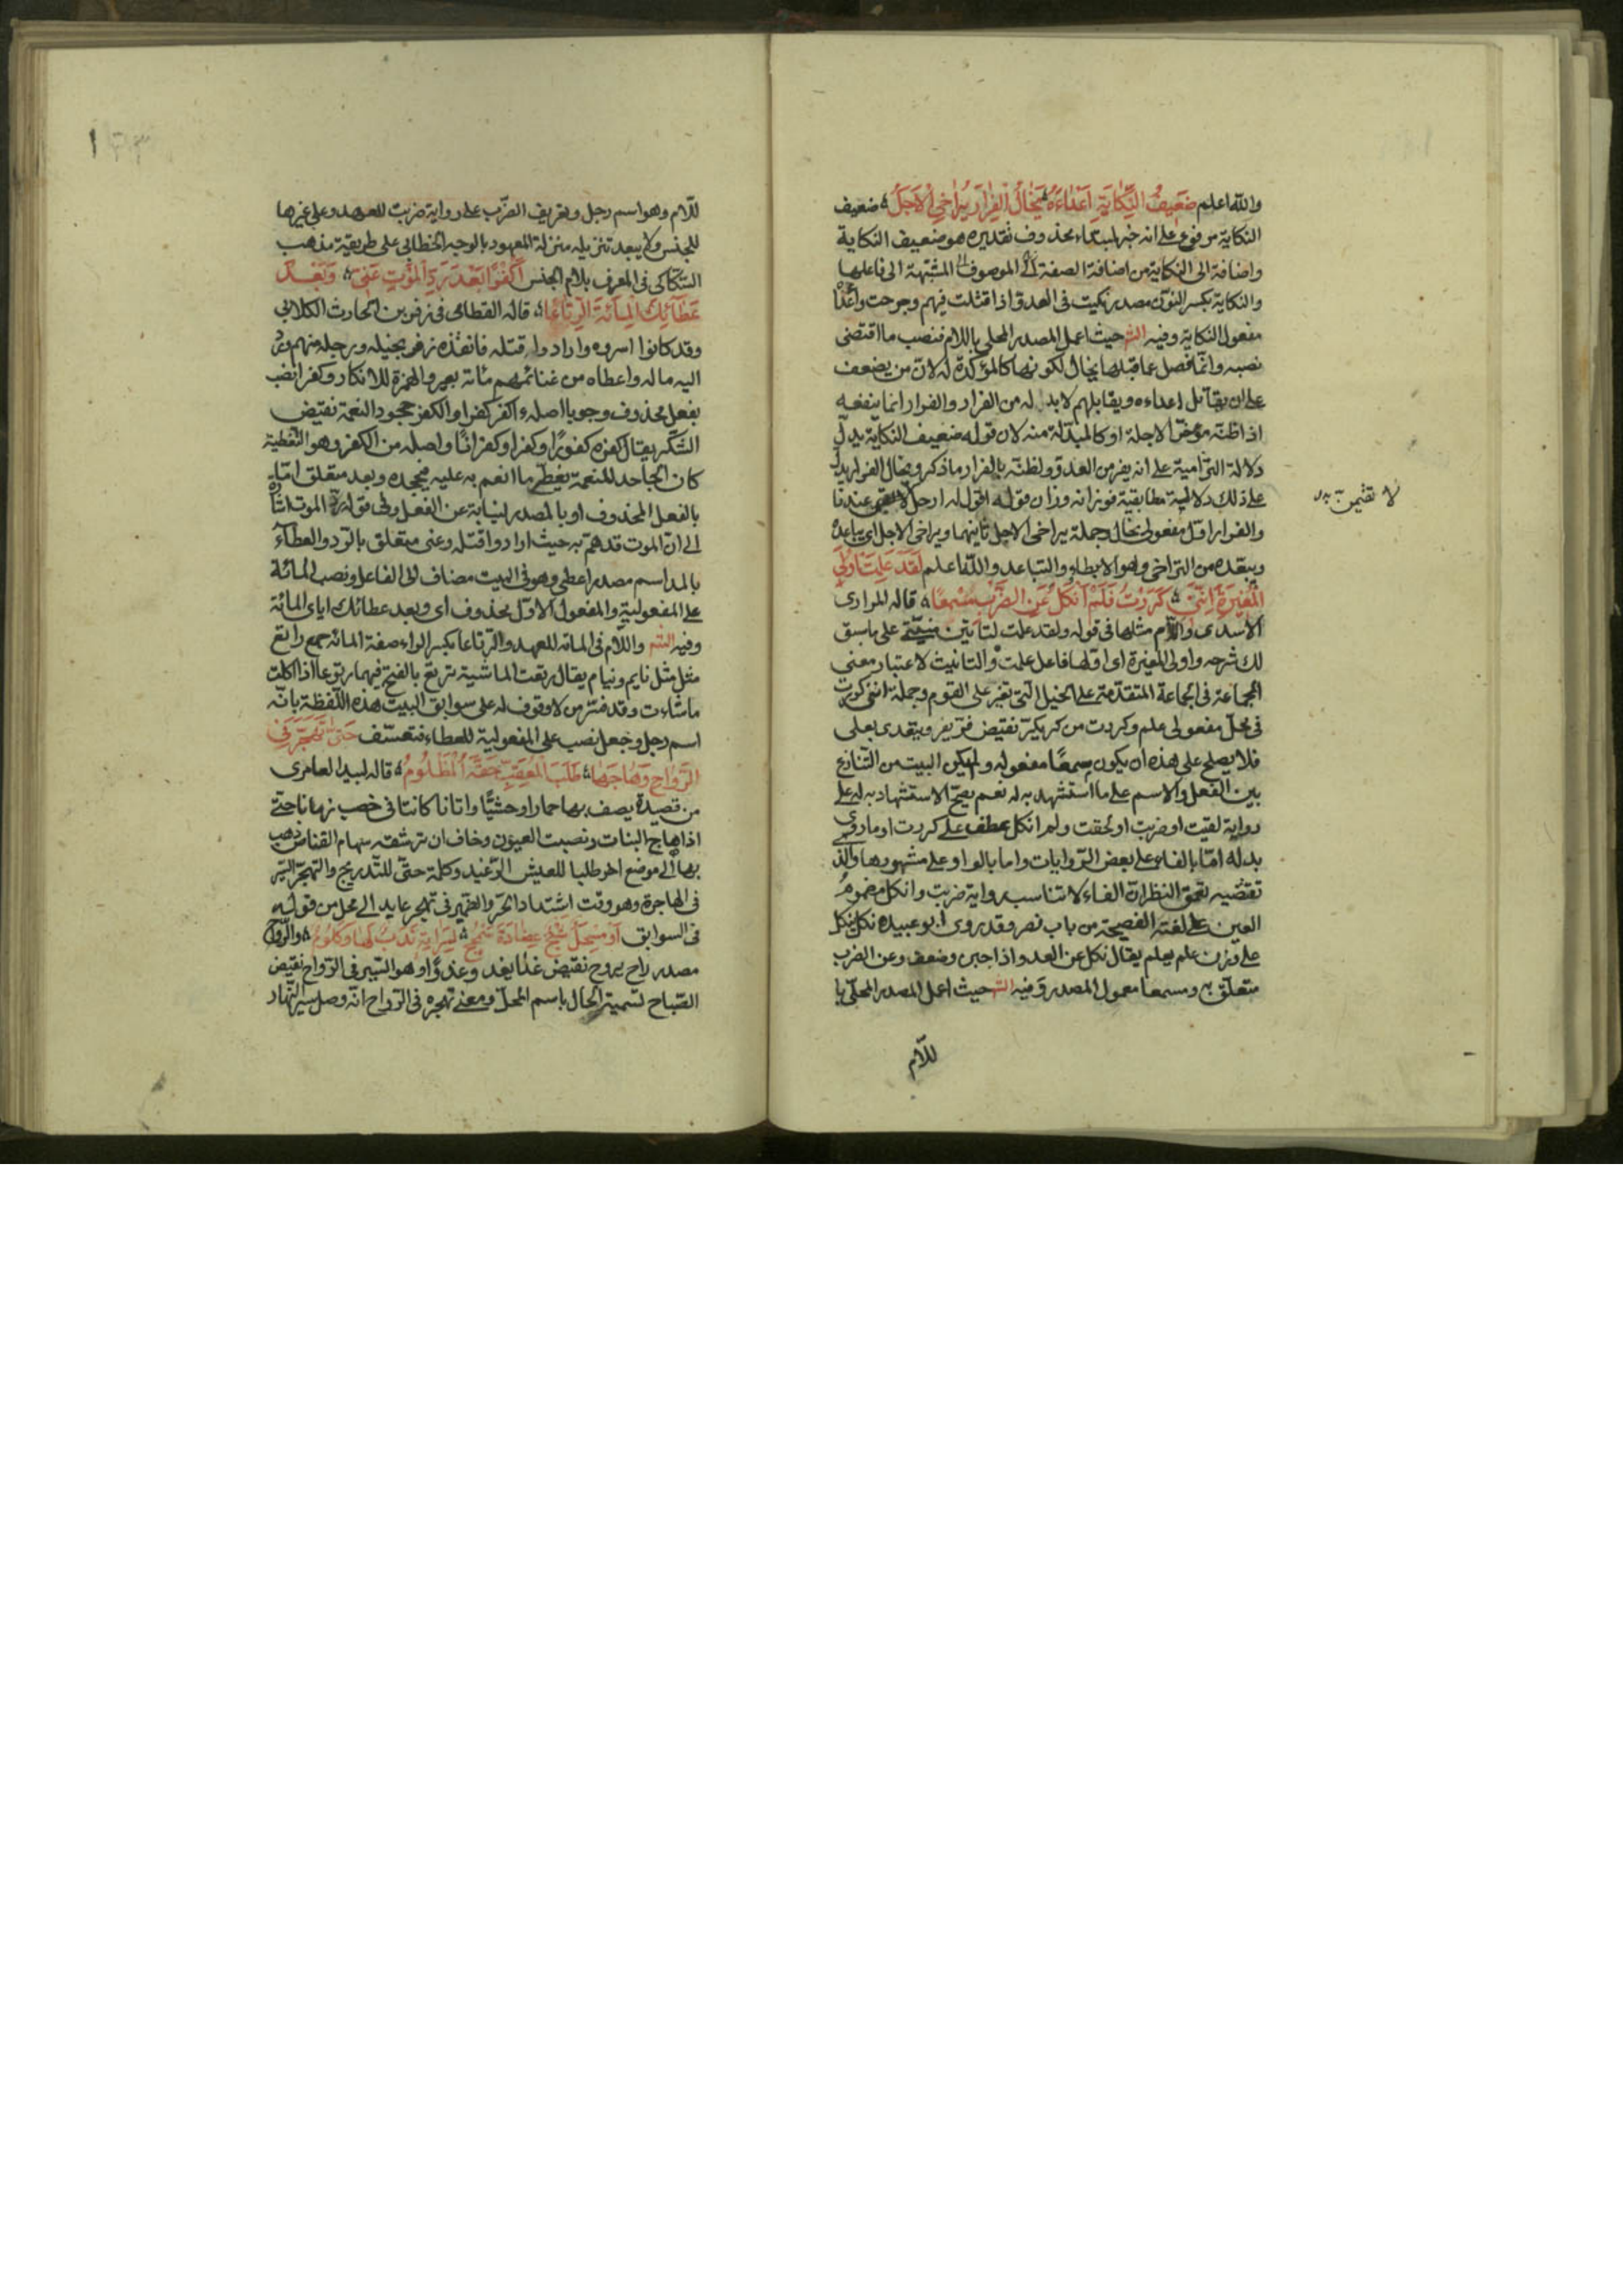 والله اعلم ضَعيفُ النِّكايَةِ اَعْداءَهُ يَخالُ الفِرارَ يُراخي الاَجَلَ ضعيف
النكاية مرفوع على انه خبر لمبتداء محذوف تقديره هو ضعيف النكاية
واضافة الى النكاية من اضافة الصفة المشبهة الى فاعلها
والنكاية بكسر النون مصدر نكيت فى العدو اذا قتلت فيهم وجرحت واعداءه
مفعول النكاية وفيه الش حيث اعمل المصدر المحلى باللام فنصب ما اقتضى
نصبه وانما فصل عما قبلها يخال لكونها كالمؤكدة له لان من يضعف
على ان يقاتل اعداءه ويقابلهم لا بد له من الفرار والفرار انما ينفعه
اذا ظنه مؤخرا لاجله او كالمبدلة منه لان قوله ضعيف النكاية يدل
دلالة التزامية على انه يفر من العدو ولظنه بالفرار ما ذكر ويخال الفرار يدل
على ذلك دلالة مطابقية فوزانه وزان قوله اقول له ارحل لا تقيمن عندنا
لا تقيمن به
والفرار اول مفعولى يخال وجملة يراخى الاجل ثانيهما ويراخى الاجل اى يباعده
ويبعده من التراخى وهو الابطاء والتباعد والله اعلم لَقَدْ عَلِمَتْ اُولَى
المُغيرَةِ اَنَّني كَرَرْتُ فَلَمْ اَنْكُلْ عَنِ الضَّرْبِ مِسْمَعًا قاله المرارى
الاسدى واللام مثلها فى قوله ولقد علمت لتأتين منيتى على ما سبق
لك شرحه واولى المغيرة اى اولها فاعل علمت والتانيث لاعتبار معنى
الجماعة فى الجماعة المتقدمة على الخيل التى تغير على القوم وجملة اننى كررت
فى محل مفعولى علم وكررت من كر يكر نقيض فر يفر ويتعدى بعلى
فلا يصلح على هذه ان يكون مسمعًا مفعوله ولم يكن البيت من التنازع
بين الفعل والاسم على ما استشهد به له نعم يصح الاستشهاد به له على
رواية لقيت او ضربت او لحقت ولم انكل عطف على كررت او ما روى
بدله اما بالفاء على بعض الروايات واما بالواو على مشهورها والذى
تقتضيه تعمق النظر ان الفاء لا تناسب رواية ضربت وانكل مضموم
العين على لغته الفصيحة من باب نصر وقد روى ابو عبيده نكل ينكل
على وزن علم يعلم يقال نكل عن العدو اذا جبن وضعف وعن الضرب
متعلق به ومسمعا معمول المصدر وفيه الش حيث اعمل المصدر المحلى با
للام
للام وهو اسم رجل وتعريف الضرب على رواية ضربت للعهد وعلى غيرها
للجنس ولا يبعد تنزيله منزلة المعهود بالوجه الخطابى على طريقة مذهب
السكاكى فى المعرف بلام الجنس اَكُفْرًا بَعْدَ رَدِّ المَوْتِ عَنّي وَبَعْدَ
عَطائِكَ المِائَةَ الرِّتاعا قاله القطامى فى زفر بن الحارث الكلابى
وقد كانوا اسروه وارادوا قتله فانقذه زفر بخيله ورجله منهم ورد
اليه ماله واعطاه من غنائمهم مائة بعير والهمزة للانكار وكفرا نصب
بفعل محذوف وجوبا اصله ءاكفر كفرا والكفر جحود النعمة نقيض
الشكر يقال كفره كفورا وكفرا وكفرانا واصله من الكفر وهو التغطية
كان الجاحد للنعمة يغطى ما انعم به عليه بجحده وبعد متعلق اما
بالفعل المحذوف او بالمصدر لنيابة عن الفعل وفى قوله رد الموت اشارة
الى ان الموت قد هم به حيث ارادوا قتله وعنى متعلق بالرد والعطاء
بالمد اسم مصدر اعطى وهو فى البيت مضاف الى الفاعل ونصب المائة
على المفعولية والمفعول الاول محذوف اى وبعد عطائك اياى المائة
وفيه الش واللام فى المائة للعهد والرتاعا بكسر الراء صفة المائة جمع راتع
مثل نايم ونيام يقال رتعت الماشية ترتع بالفتح فيهما رتوعا اذا اكلت
ماشاءت وقد فسر من لا وقوف له على سوابق البيت هذه اللفظة بانه
اسم رجل وجعل نصب على المفعولية للعطاء فتعسف حَتّى تَهَجَّرَ في
الرَّواحِ وَهاجَها طَلَبَ المُعَقِّبِ حَقَّهُ المَظْلومُ قاله لبيد العامرى
من قصيدة يصف بها حمارا وحشيا واتانا كانتا فى خصب زمانا حتى
اذا هاج النبات ونصبت العيون وخاف ان ترشقه سهام القناص ذهب
بها الى موضع اخر طلبا للعيش الرغيد وكلمة حتى للتدريج والتهجر السير
فى الهاجرة وهو وقت اشتداد الحر والضمير فى تهجر عايد الى محل من قوله
فى السوابق اَوْ مِسْحَلٌ شَنِجٌ عِضادَةَ سَمْحَجٍ بِسَراتِهِ نَدَبٌ لَها وَكُلومُ والرواح
مصدر راح يروح نقيض غدا يغدو وغدوًا وهو السير فى الرواح نقيض
الصباح لتسمية الحال باسم المحل ومعنى تهجره فى الرواح انه وصل سير النهار